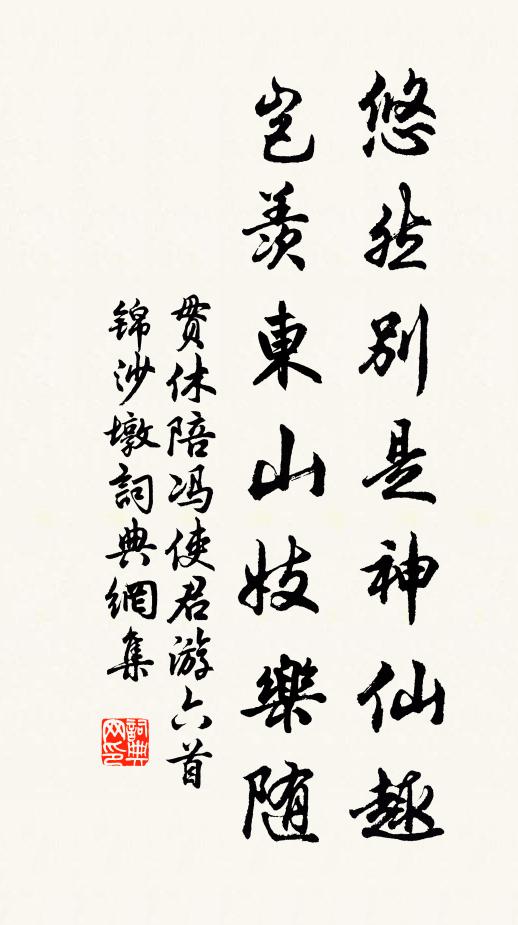 悠然别是神仙趣
岂羨東山妓樂随
贯休陪冯使君游六首
锦沙墩詞典網集
詞典网印